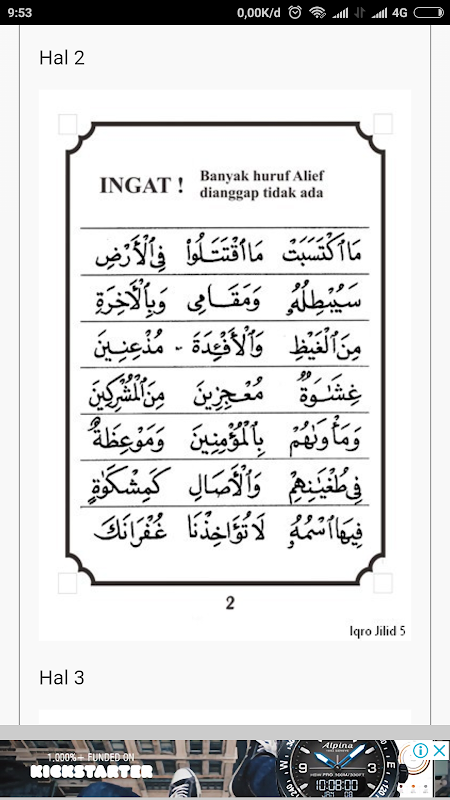 9:53 0,00K/d 4G
Hal 2
INGAT ! Banyak huruf Alief
dianggap tidak ada
مَا ٱكْتَسَبَتْ مَا ٱقْتَتَلُوا۟ فِى ٱلْأَرْضِ
سَيُبْطِلُهُۥ وَمَقَامِى وَبِٱلْأَخِرَةِ
مِنَ ٱلْغَيْظِ وَٱلْأَفْـِٔدَةَ - مُذْعِنِينَ
غِشَٰوَةٌ مُعْجِزِينَ مِنَ ٱلْمُشْرِكِينَ
وَمَأْوَىٰهُمْ بِٱلْمُؤْمِنِينَ وَمَوْعِظَةٌ
فِى طُغْيَٰنِهِمْ وَٱلْأَصَالِ كَمِشْكَوٰةٍ
فِيهَا ٱسْمُهُۥ لَا تُؤَاخِذْنَا غُفْرَانَكَ
2
Iqro Jilid 5
Hal 3
1,000%+ FUNDED ON
KICKSTARTER
Alpina
10:08:00